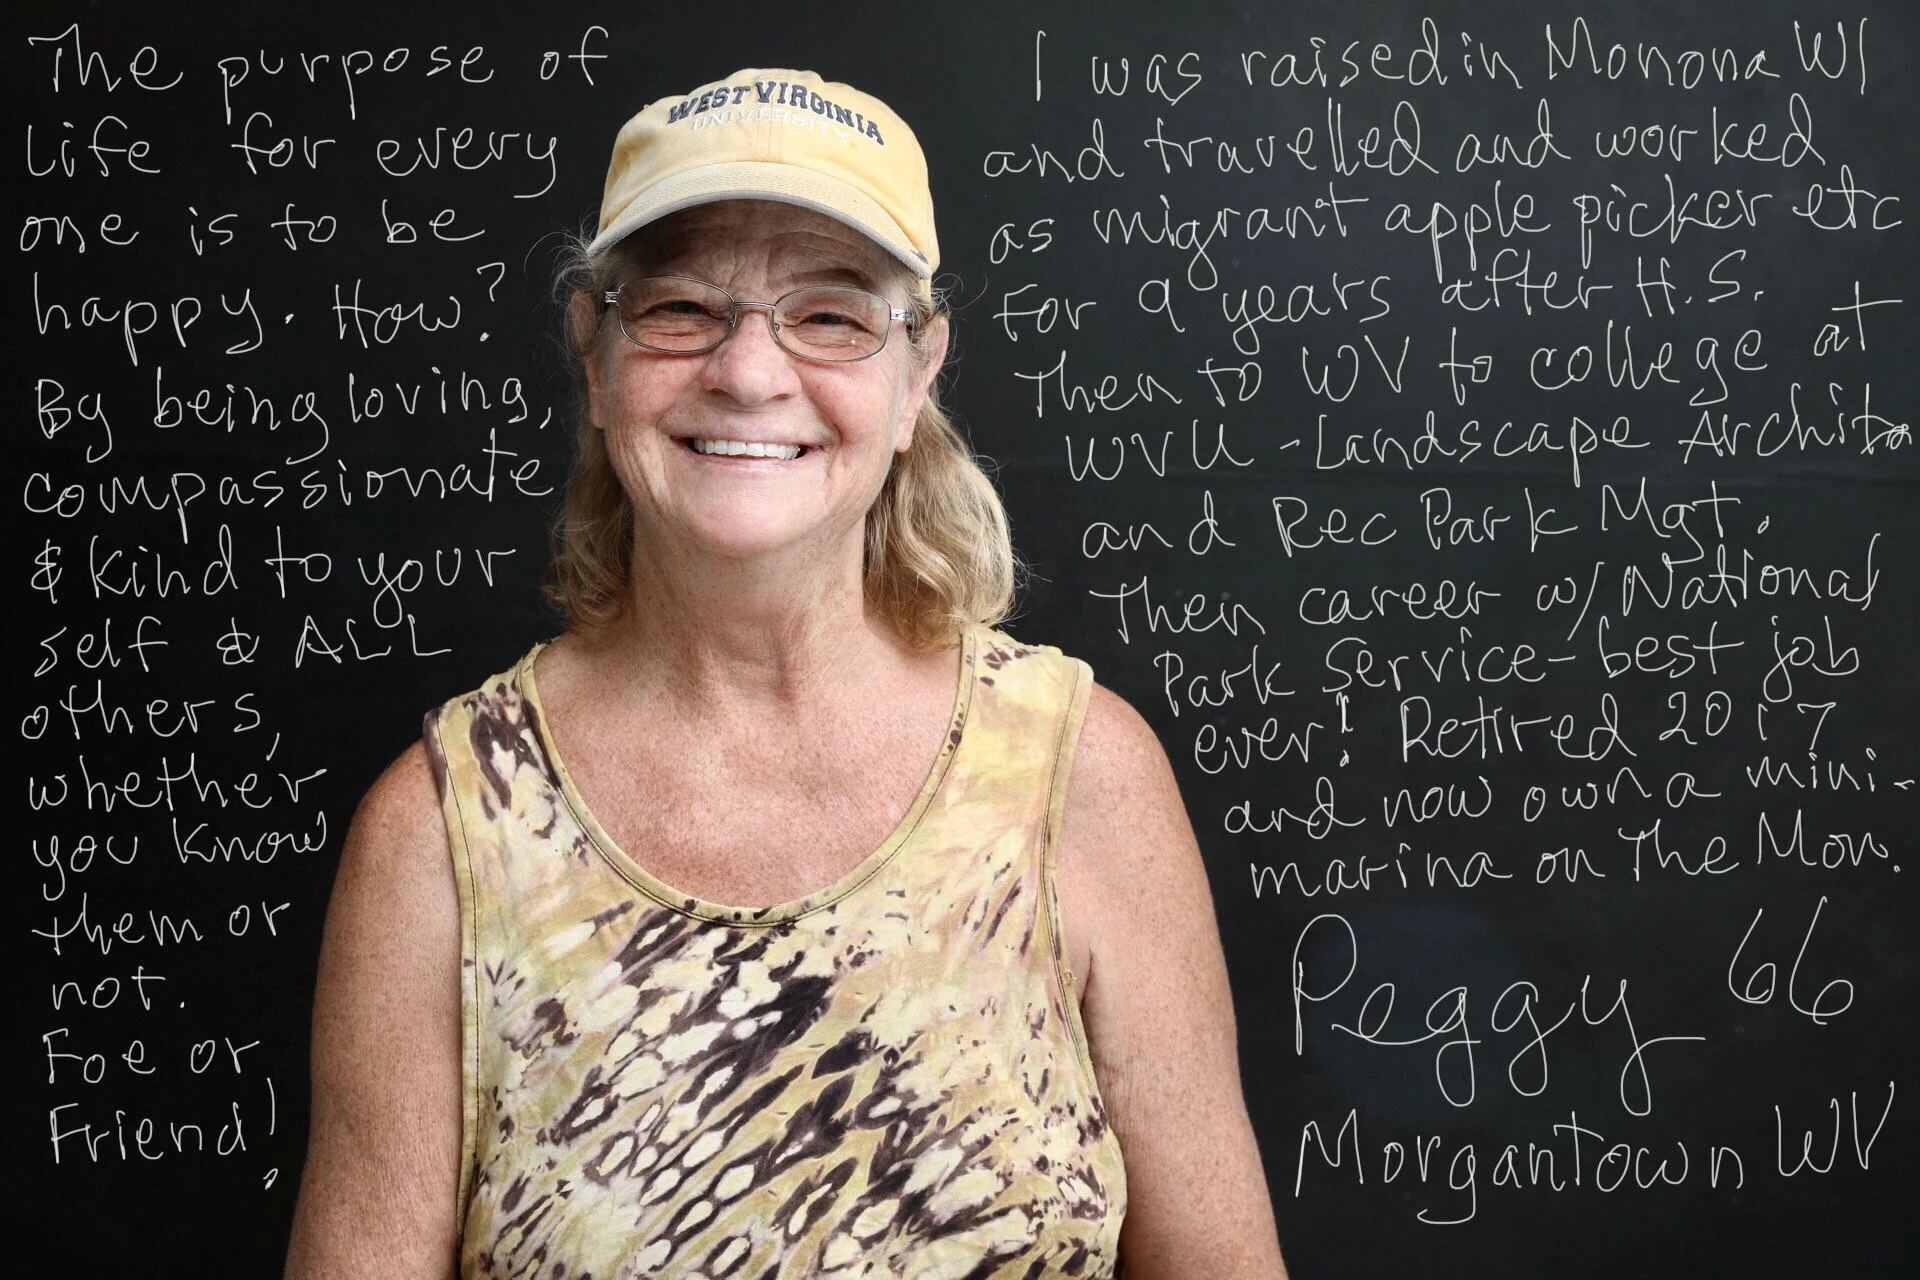 The purpose of
life for every
one is to be
happy. How?
By being loving,
compassionate
& kind to your
self & ALL
others,
whether
you know
them or
not.
Foe or
Friend!
WEST VIRGINIA
UNIVERSITY
I was raised in Monona WI
and travelled and worked
as migrant apple picker etc
for 9 years after H.S.
Then to WV to college at
WVU - Landscape
and Rec Park Mgt.
Then career w/ National
Park Service - best job
ever! Retired 2017
and now own a mini-
marina on The Mon.
Peggy 66
Morgantown WV